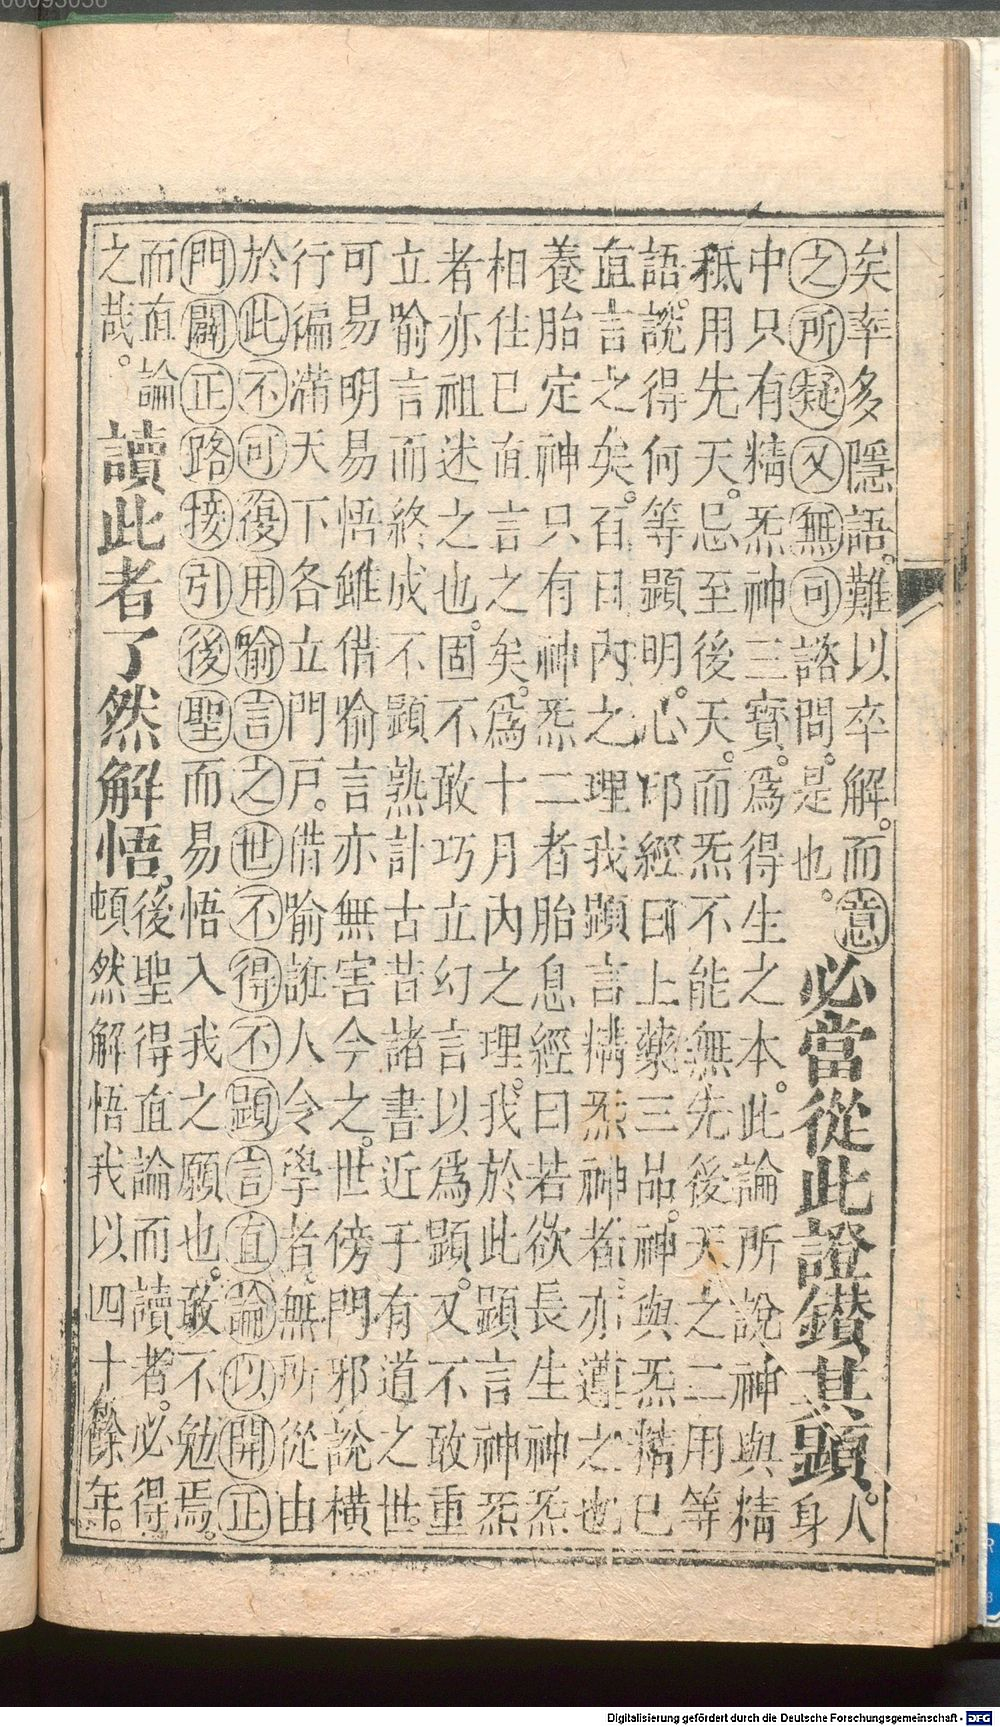 矣率多隱語。難以卒解。而意
之所疑又無可諮問。是也。
必當從此證鑚其顕。
人
身
中只有精炁神三寳。爲得生之本。此論所說神與精
秪用先天。忌至後天。而炁不能無先後天之二用等
語。說得何等顕明。心印經曰上藥三品。神與炁精已
直言之矣。百日內之理我顕言精炁神者。亦遵之也
養胎定神只有神炁二者胎息經曰若欲長生神炁
相住已直言之矣。爲十月內之理。我於此顕言神炁
者亦祖述之也。固不敢巧立幻言以爲顕。又不敢重
立喻言而終成不顕熟計古昔諸書近于有道之世。
可易明易悟雖借喻言亦無害今之。世傍門邪說橫
行徧滿天下各立門戸。借喻誑人令學者。無所從由
於此不可復用喻言之世不得不顕言直論以開正
門闢正路接引後聖而易悟入我之願也。敢不勉焉。
而直論
之哉。
讀此者了然解悟。
後聖得直論而讀者。必得
頓然解悟我以四十餘年。
Digitalisierung gefördert durch die Deutsche Forschungsgemeinschaft - DFG